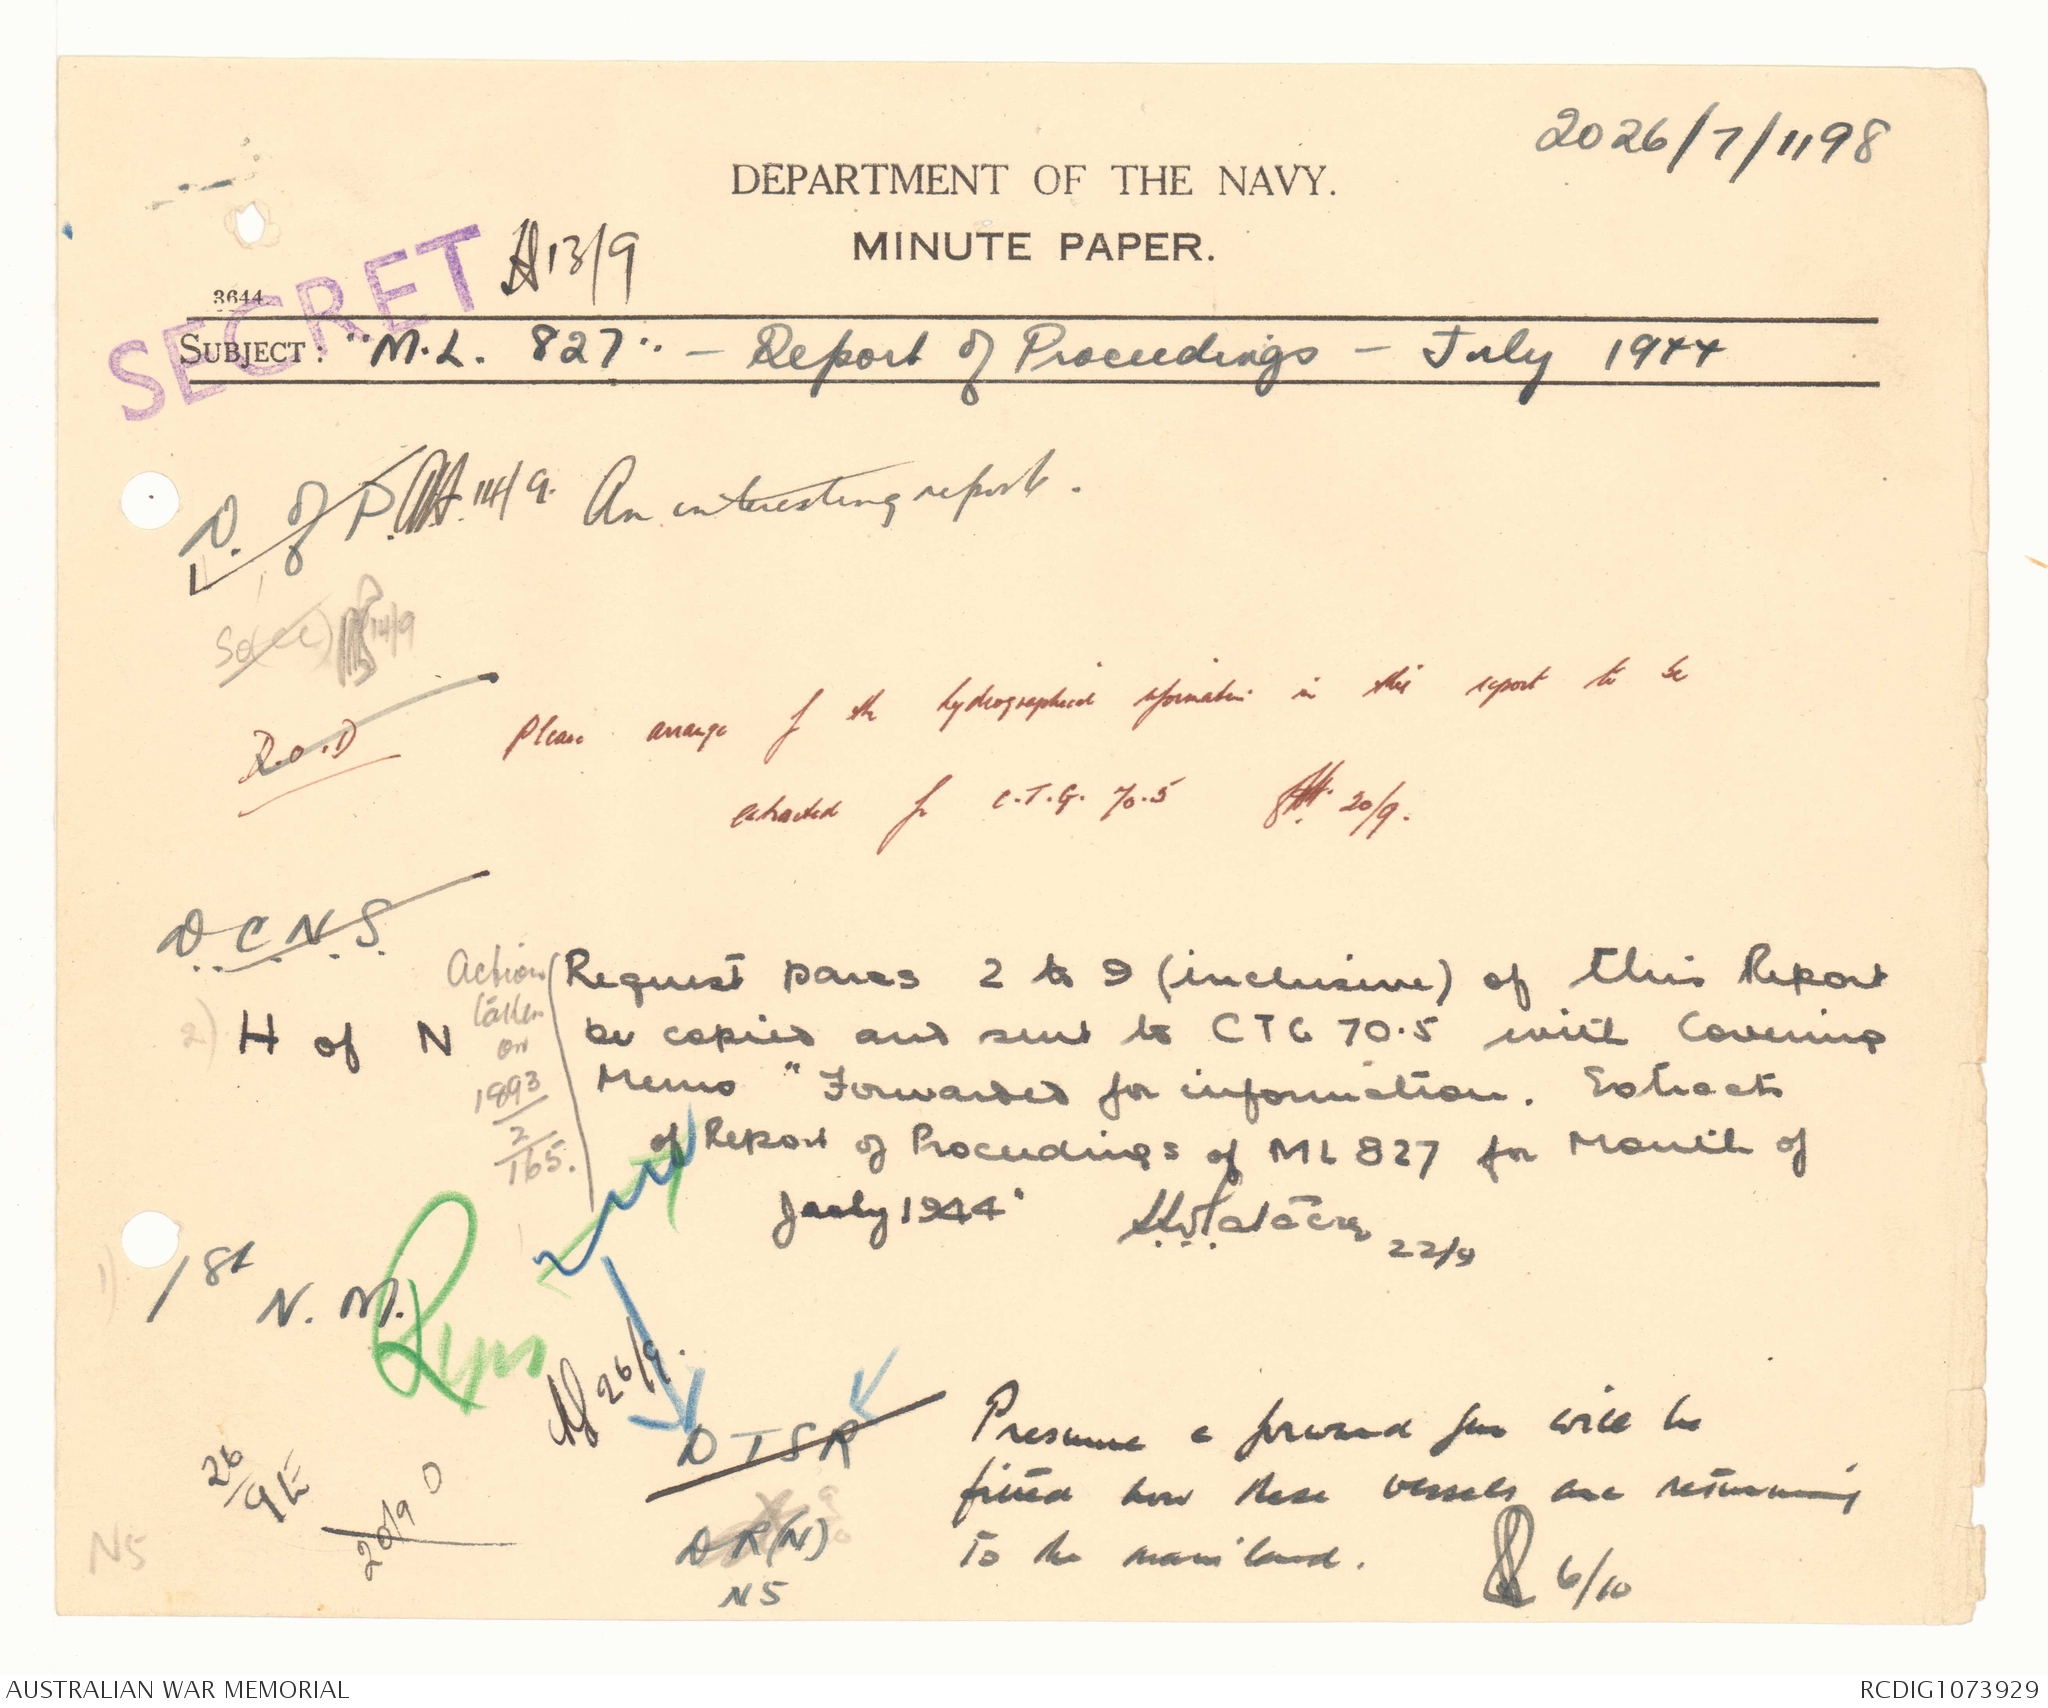 2026/7/1198
DEPARTMENT OF THE NAVY.
MINUTE PAPER.
SECRET
13/9
3644
SUBJECT: "M.L. 827". - Report of Proceedings - July 1944
D. of P. 14/9. An interesting report.
SO(CC) 14/9
D.O.D Please arrange for the hydrographical information in this report to be
extracted for C.T.G. 70.5 20/9.
D.C.N.S.
2) H of N
Action
taken
on
1893
2
165.
Request paras 2 to 9 (inclusive) of this Report
be copied and sent to CTG 70.5 with Covering
Memo "Forwarded for information. Extracts
of Report of Proceedings of ML 827 for Month of
July 1944"
22/9
1) 1st N.M.
26/9.
26/9
20/9 D
DTSR
Presume a forward gun will be
fitted now these vessels are returning
to the mainland.
6/10
DR(N)
N5
N5
AUSTRALIAN WAR MEMORIAL
RCDIG1073929